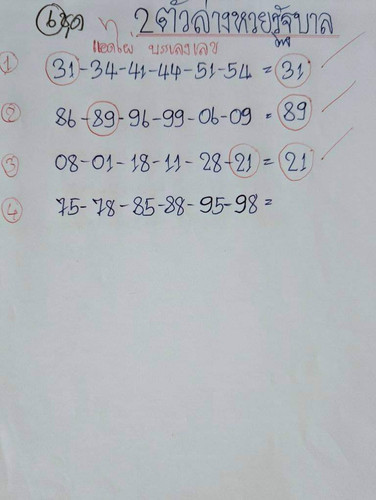 เชุด 2ตัวล่างหวยรัฐบาล
แอดไผ่ บรรเลงเลข
1 31-34-41-44-51-54 = 31
2 86-89-96-99-06-09 = 89
3 08-01-18-11-28-21 = 21
4 75-78-85-88-95-98 =